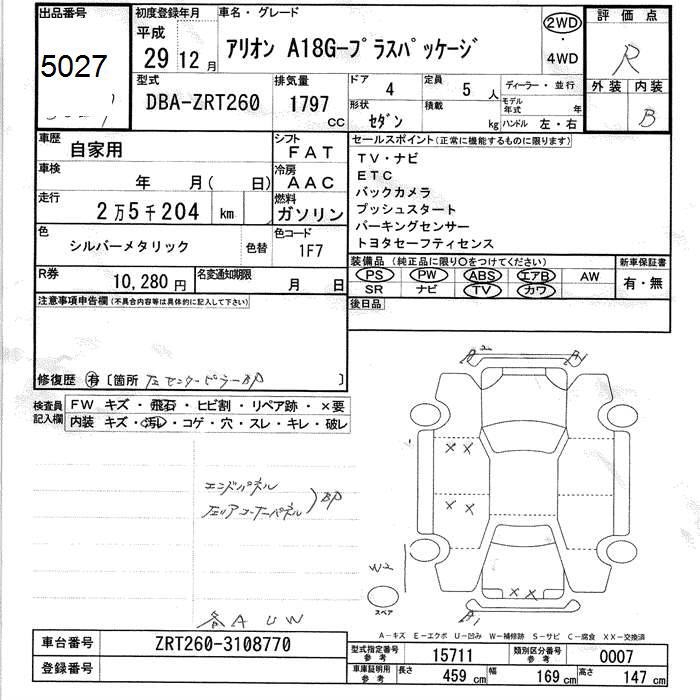 出品番号
5027
初度登録年月
平成
29 12 月
車名・グレード
アリオン A18G-プラスパッケージ
2WD
・
4WD
評価点
R
外装 内装
B
型式
DBA-ZRT260
排気量
1797 cc
ドア 4
定員 5 人
形状 セダン
積載 kg
ディーラー・並行
モデル年式 年
ハンドル 左・右
車歴 自家用
シフト FAT
車検 年 月( 日)
冷房 AAC
走行 2万5千204 km
燃料 ガソリン
色 シルバーメタリック 色替
色コード 1F7
R券 10,280 円
名変通知期限 月 日
セールスポイント(正常に機能するものに限ります)
TV・ナビ
ETC
バックカメラ
プッシュスタート
パーキングセンサー
トヨタセーフティセンス
装備品 (純正品に限り○をつけてください)
PS PW ABS エアB AW
SR ナビ TV カワ
新車保証書
有・無
後日品
注意事項申告欄(不具合内容等は具体的に記入して下さい)
修復歴 有 〔箇所 左センターピラーBP 〕
検査員記入欄
FW キズ・飛石・ヒビ割・リペア跡・×要
内装 キズ・汚れ・コゲ・穴・スレ・キレ・破レ
エンドパネル
左リアコーナーパネル
BP
各A U W
A2
A1
×× 
××
××
W2
スペア
B1
A-キズ E-エクボ U-凹み W-補修跡 S-サビ C-腐食 XX-交換済
車台番号 ZRT260-3108770
登録番号
型式指定番号 参考 15711
類別区分番号 参考 0007
車庫証明用 参考 長さ 459 cm 幅 169 cm 高さ 147 cm